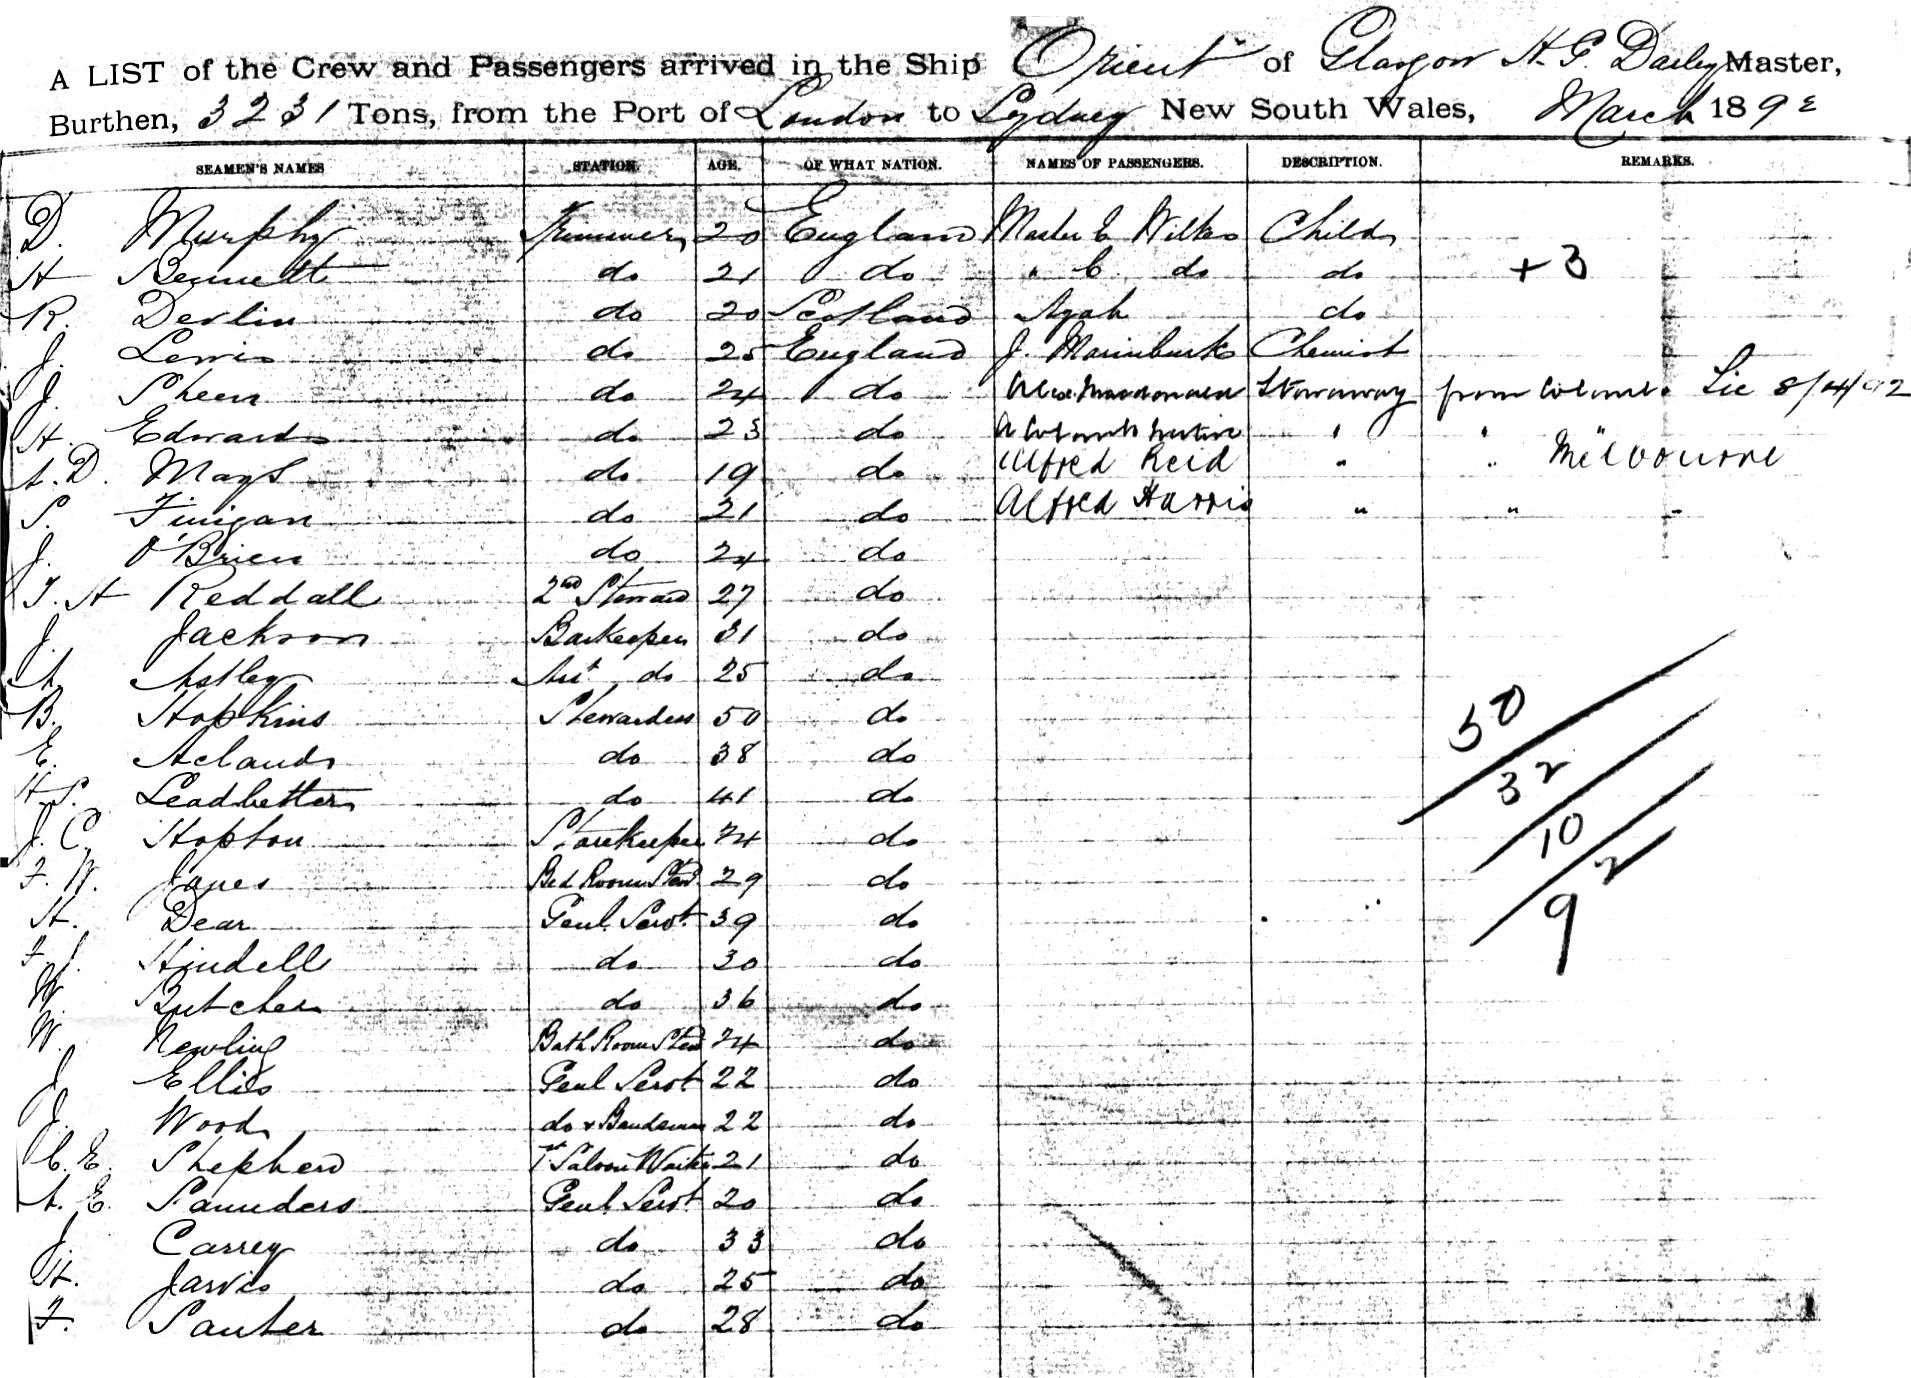 A LIST of the Crew and Passengers arrived in the Ship Orient of Glasgow H. G. Master,
Burthen, 3231 Tons, from the Port of London to Sydney New South Wales, March 189
SEAMEN'S NAMES STATION. AGE. OF WHAT NATION. NAMES OF PASSENGERS. DESCRIPTION. REMARKS.
D. Murphy Trimmer 20 England Master E Wilks Child
H Bennett do 21 do " C. do do + 3
R. Devlin do 20 Scotland Ayah do
J. Lewis do 25 England J. Chemist
J. Sheen do 24 do Alex. Macdonald Stowaway from Colombo Lie 8/4/92
H. Edwards do 23 do A Colombo native " "
A. D. Mays do 19 do Alfred Reid " " Melbourne
S. Finigan do 21 do Alfred Harris " " "
J. O'Brien do 24 do
T. H Reddall 2nd Steward 27 do
J. Jackson Barkeeper 31 do
A Astley Asst do 25 do
B. Hopkins Stewardess 50 do 50
E. Acland do 38 do
H. S. Leadbetter do 41 do 32
J. C. Hopton Storekeeper 24 do 10
F. W. Janes Bed Room Stewd 29 do 2
H. Dear Genl. Servt. 39 do 9
F. J. Hindell do 30 do
W. Butcher do 36 do
W. Newling Bath Room Stewd 24 do
J. Ellis Genl Servt 22 do
J. Wood do & Bandsman 22 do
C. E. Shepherd 1st Saloon Waiter 21 do
A. E. Saunders Genl. Servt 20 do
J. Carrey do 33 do
H. Jarvis do 25 do
F. Sauter do 28 do